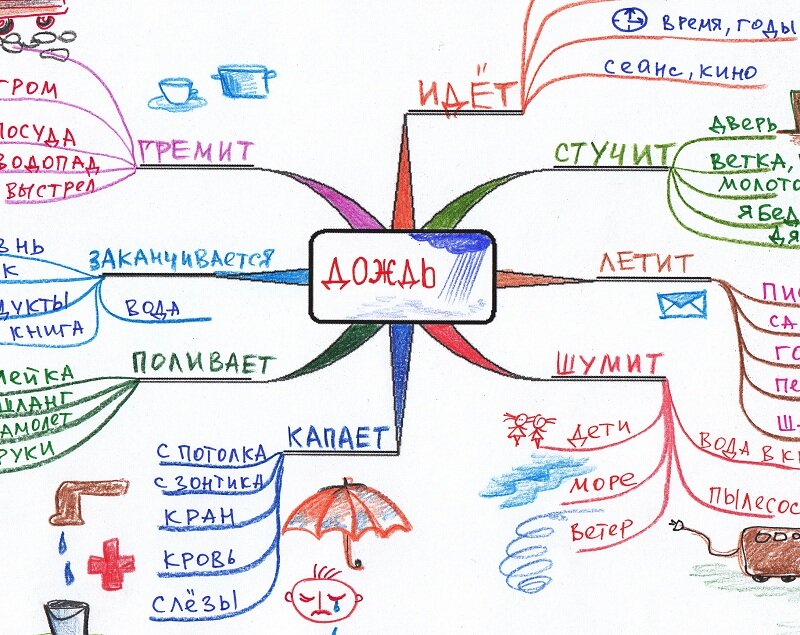 ДОЖДЬ
ИДЁТ
ВРЕМЯ, ГОДЫ
СЕАНС, КИНО
СТУЧИТ
ДВЕРЬ
ВЕТКА,
МОЛОТО
ЯБЕД
ДЯ
ЛЕТИТ
ПИС
СА
ГО
ПЕ
Ш
ШУМИТ
ДЕТИ
МОРЕ
ВЕТЕР
ВОДА В К
ПЫЛЕСОС
КАПАЕТ
С ПОТОЛКА
С ЗОНТИКА
КРАН
КРОВЬ
СЛЁЗЫ
ПОЛИВАЕТ
ЛЕЙКА
ШЛАНГ
АМОЛЕТ
РУКИ
ЗАКАНЧИВАЕТСЯ
ЗНЬ
К
ДУКТЫ
КНИГА
ВОДА
ГРЕМИТ
ГРОМ
ПОСУДА
ВОДОПАД
ВЫСТРЕЛ